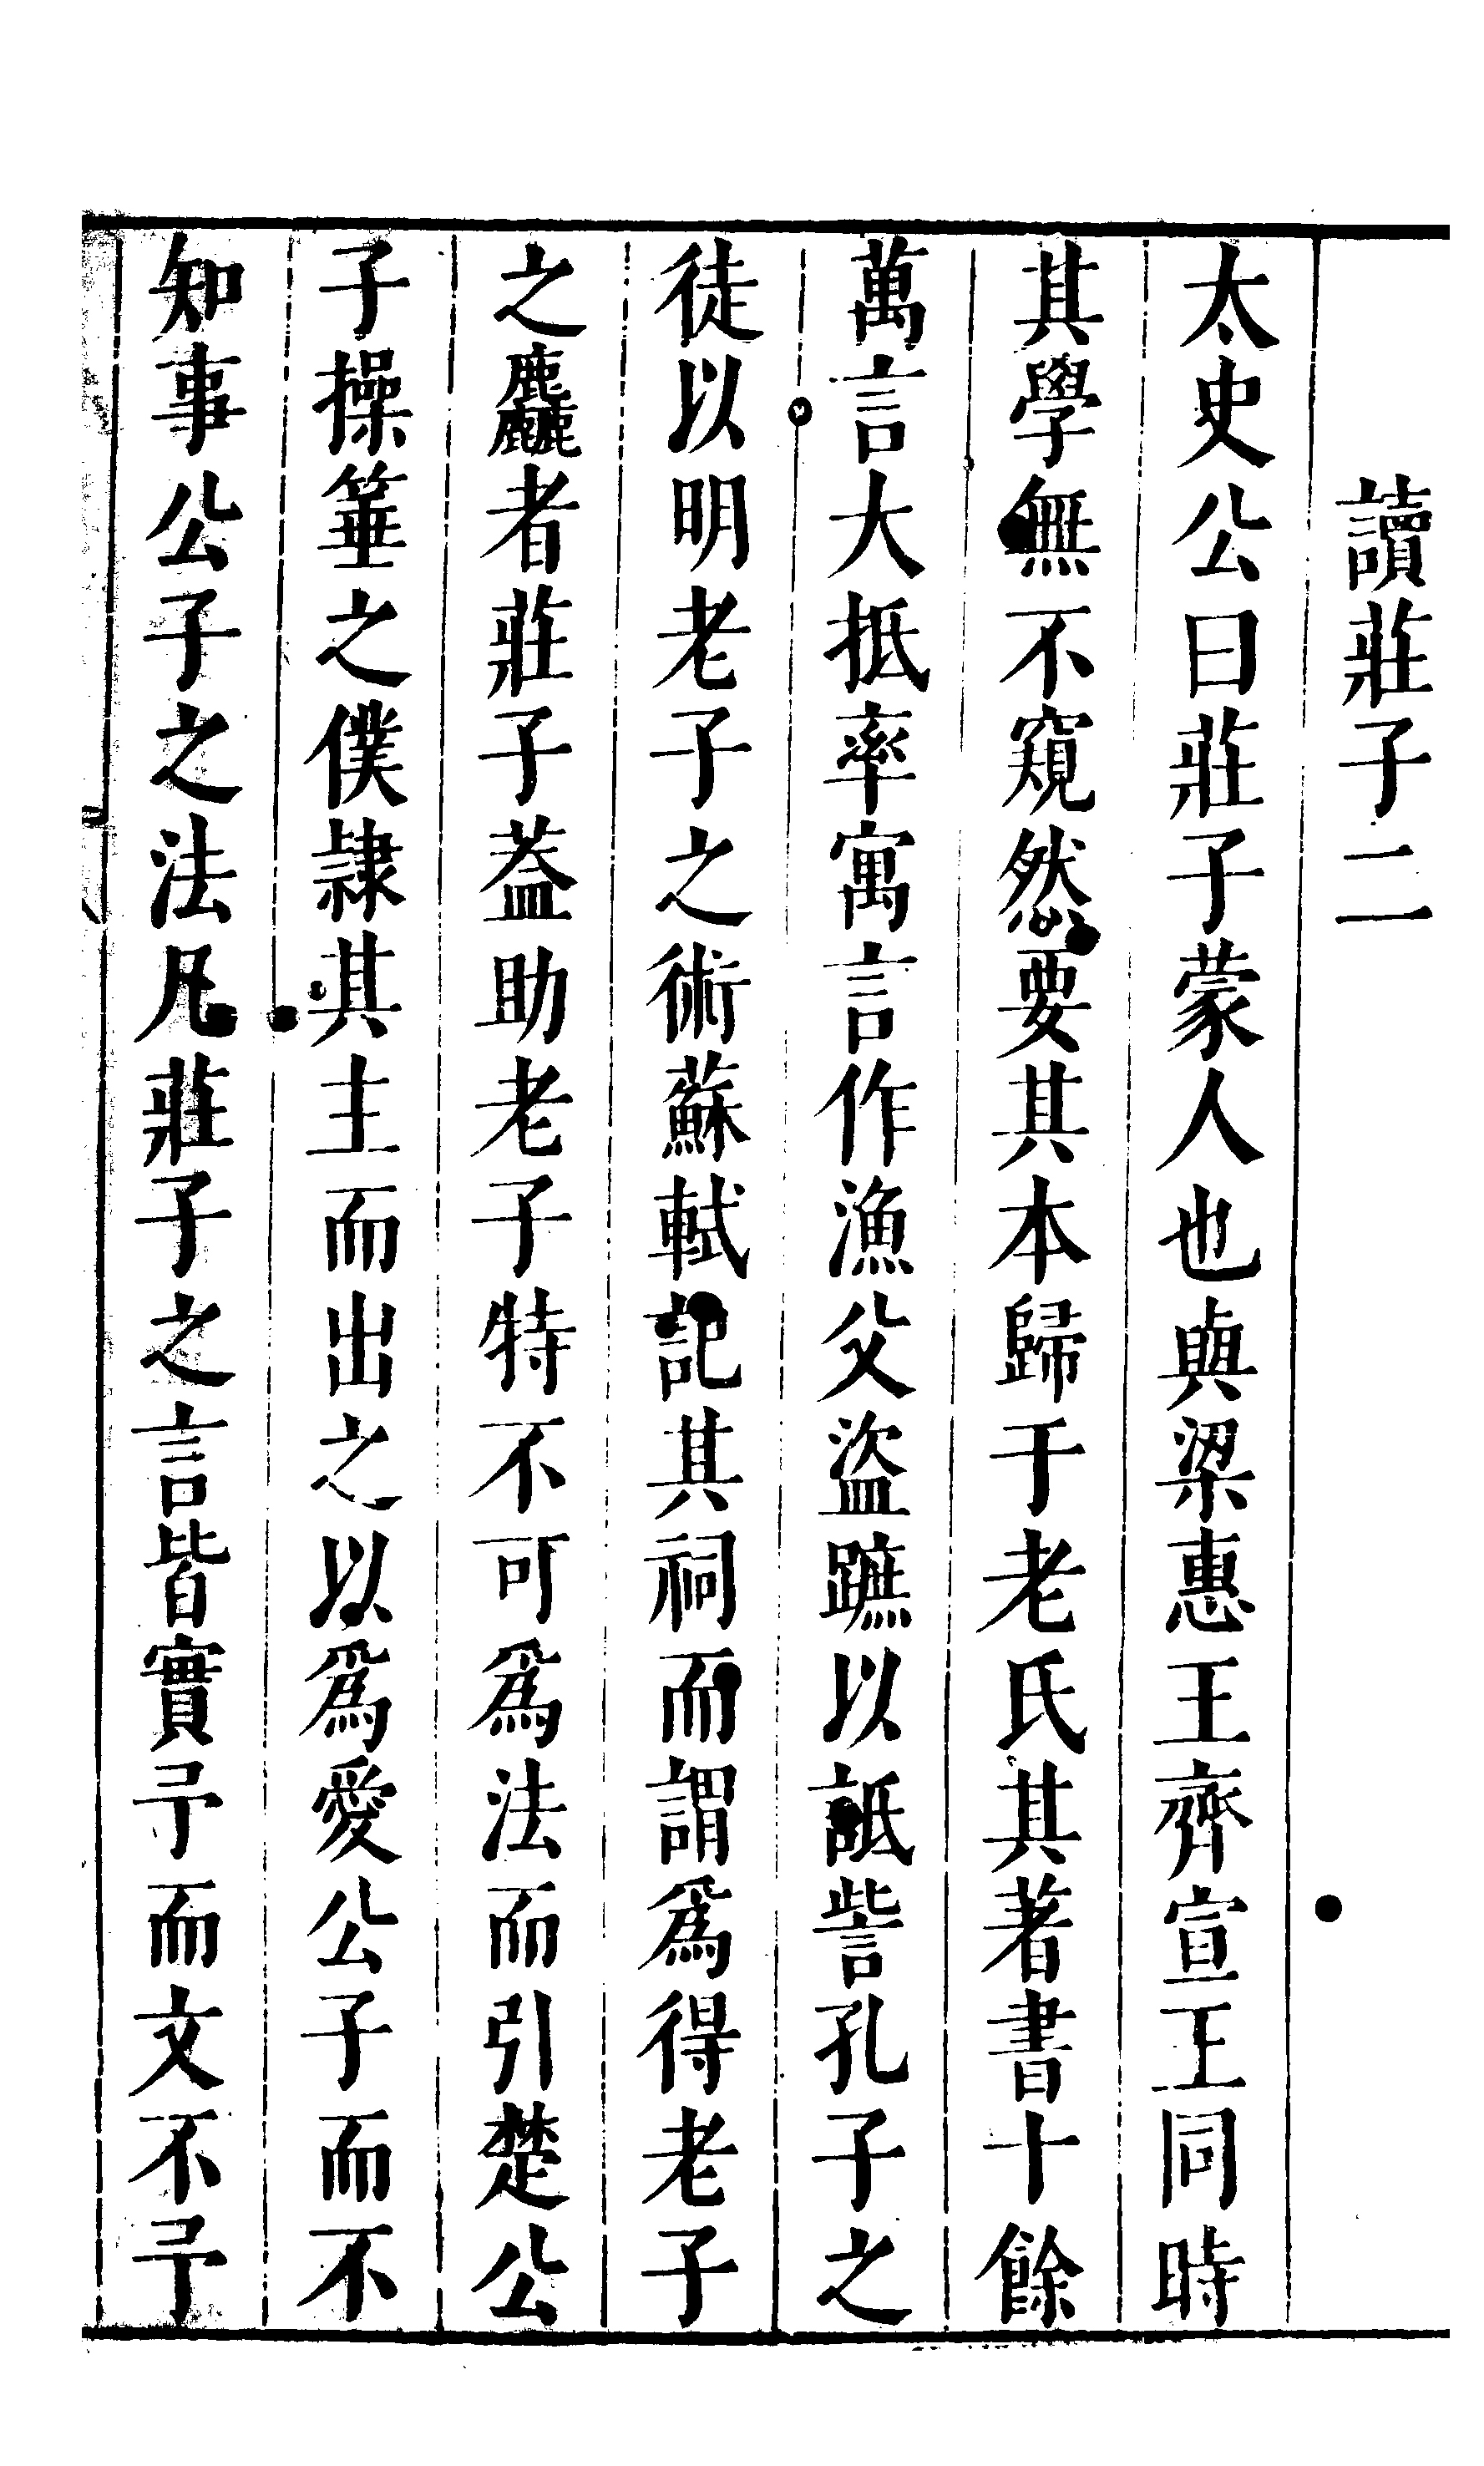 讀莊子二
太史公曰莊子蒙人也與梁惠王齊宣王同時
其學無不窺然要其本歸于老氏其著書十餘
萬言大抵率寓言作漁父盜蹠以詆訾孔子之
徒以明老子之術蘇軾記其祠而謂爲得老子
之麤者莊子葢助老子特不可爲法而引楚公
子操箠之僕隷其主而出之以爲愛公子而不
知事公子之法凡莊子之言皆實予而文不予